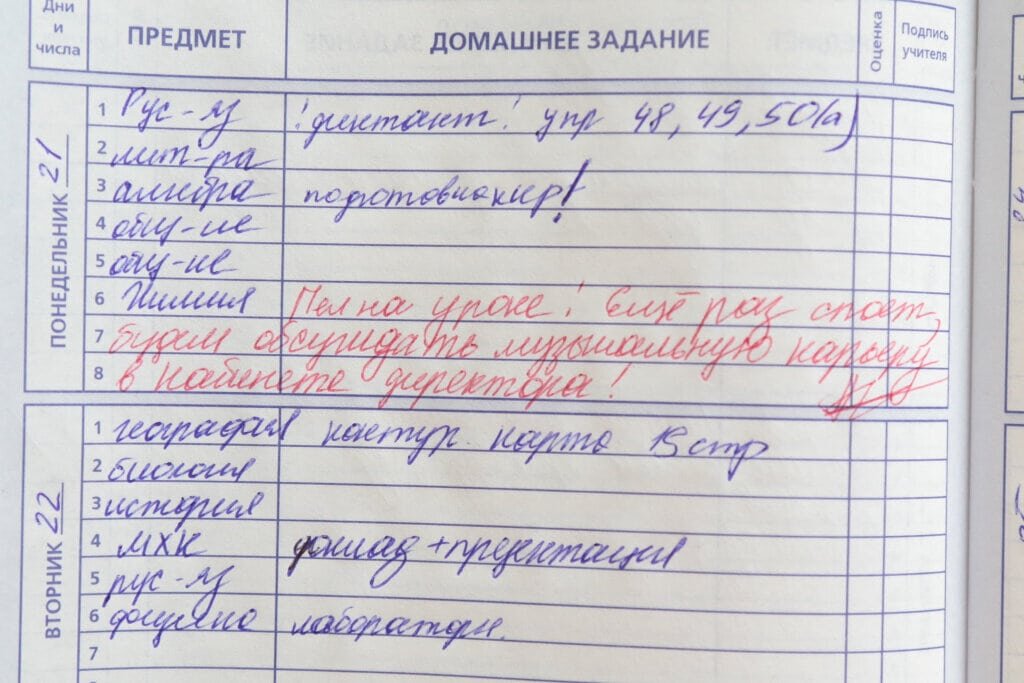 Дни и числа ПРЕДМЕТ ДОМАШНЕЕ ЗАДАНИЕ Оценка Подпись учителя
ПОНЕДЕЛЬНИК 21
1 Рус-яз ! диктант! упр 48, 49, 50(а)
2 лит-ра
3 алгебра подготовка к кр!
4 общ-ие
5 общ-ие
6 Химия Пел на уроке! Ещё раз споет,
7 будем обсуждать музыкальную карьеру
8 в кабинете директора!
ВТОРНИК 22
1 география контур. карта стр
2 биология
3 история
4 МХК доклад + презентация
5 рус-яз
6 лаборатори.
7